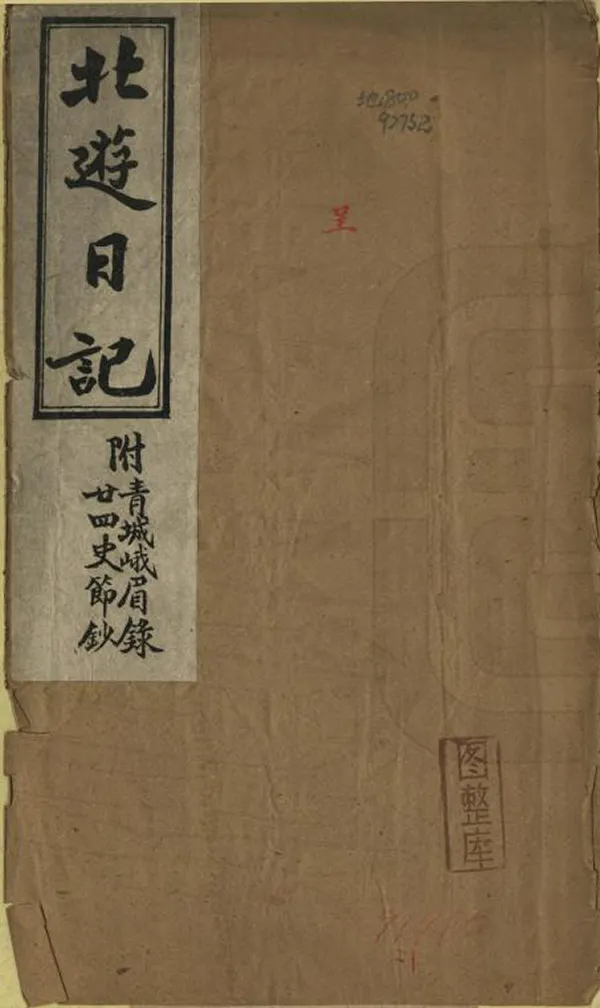 北遊日記
附
青城峨眉錄
廿四史節鈔
地800
92752
呈
图整库